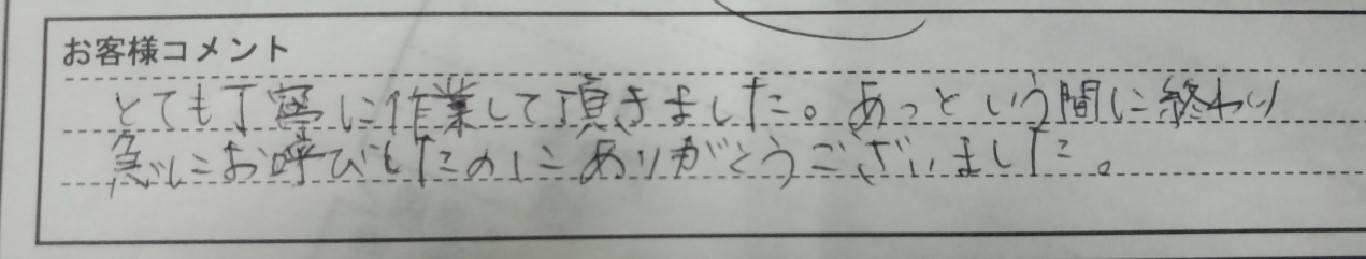 お客様コメント
とても丁寧に作業して頂きました。あっという間に終わり
急にお呼びしたのにありがとうございました。